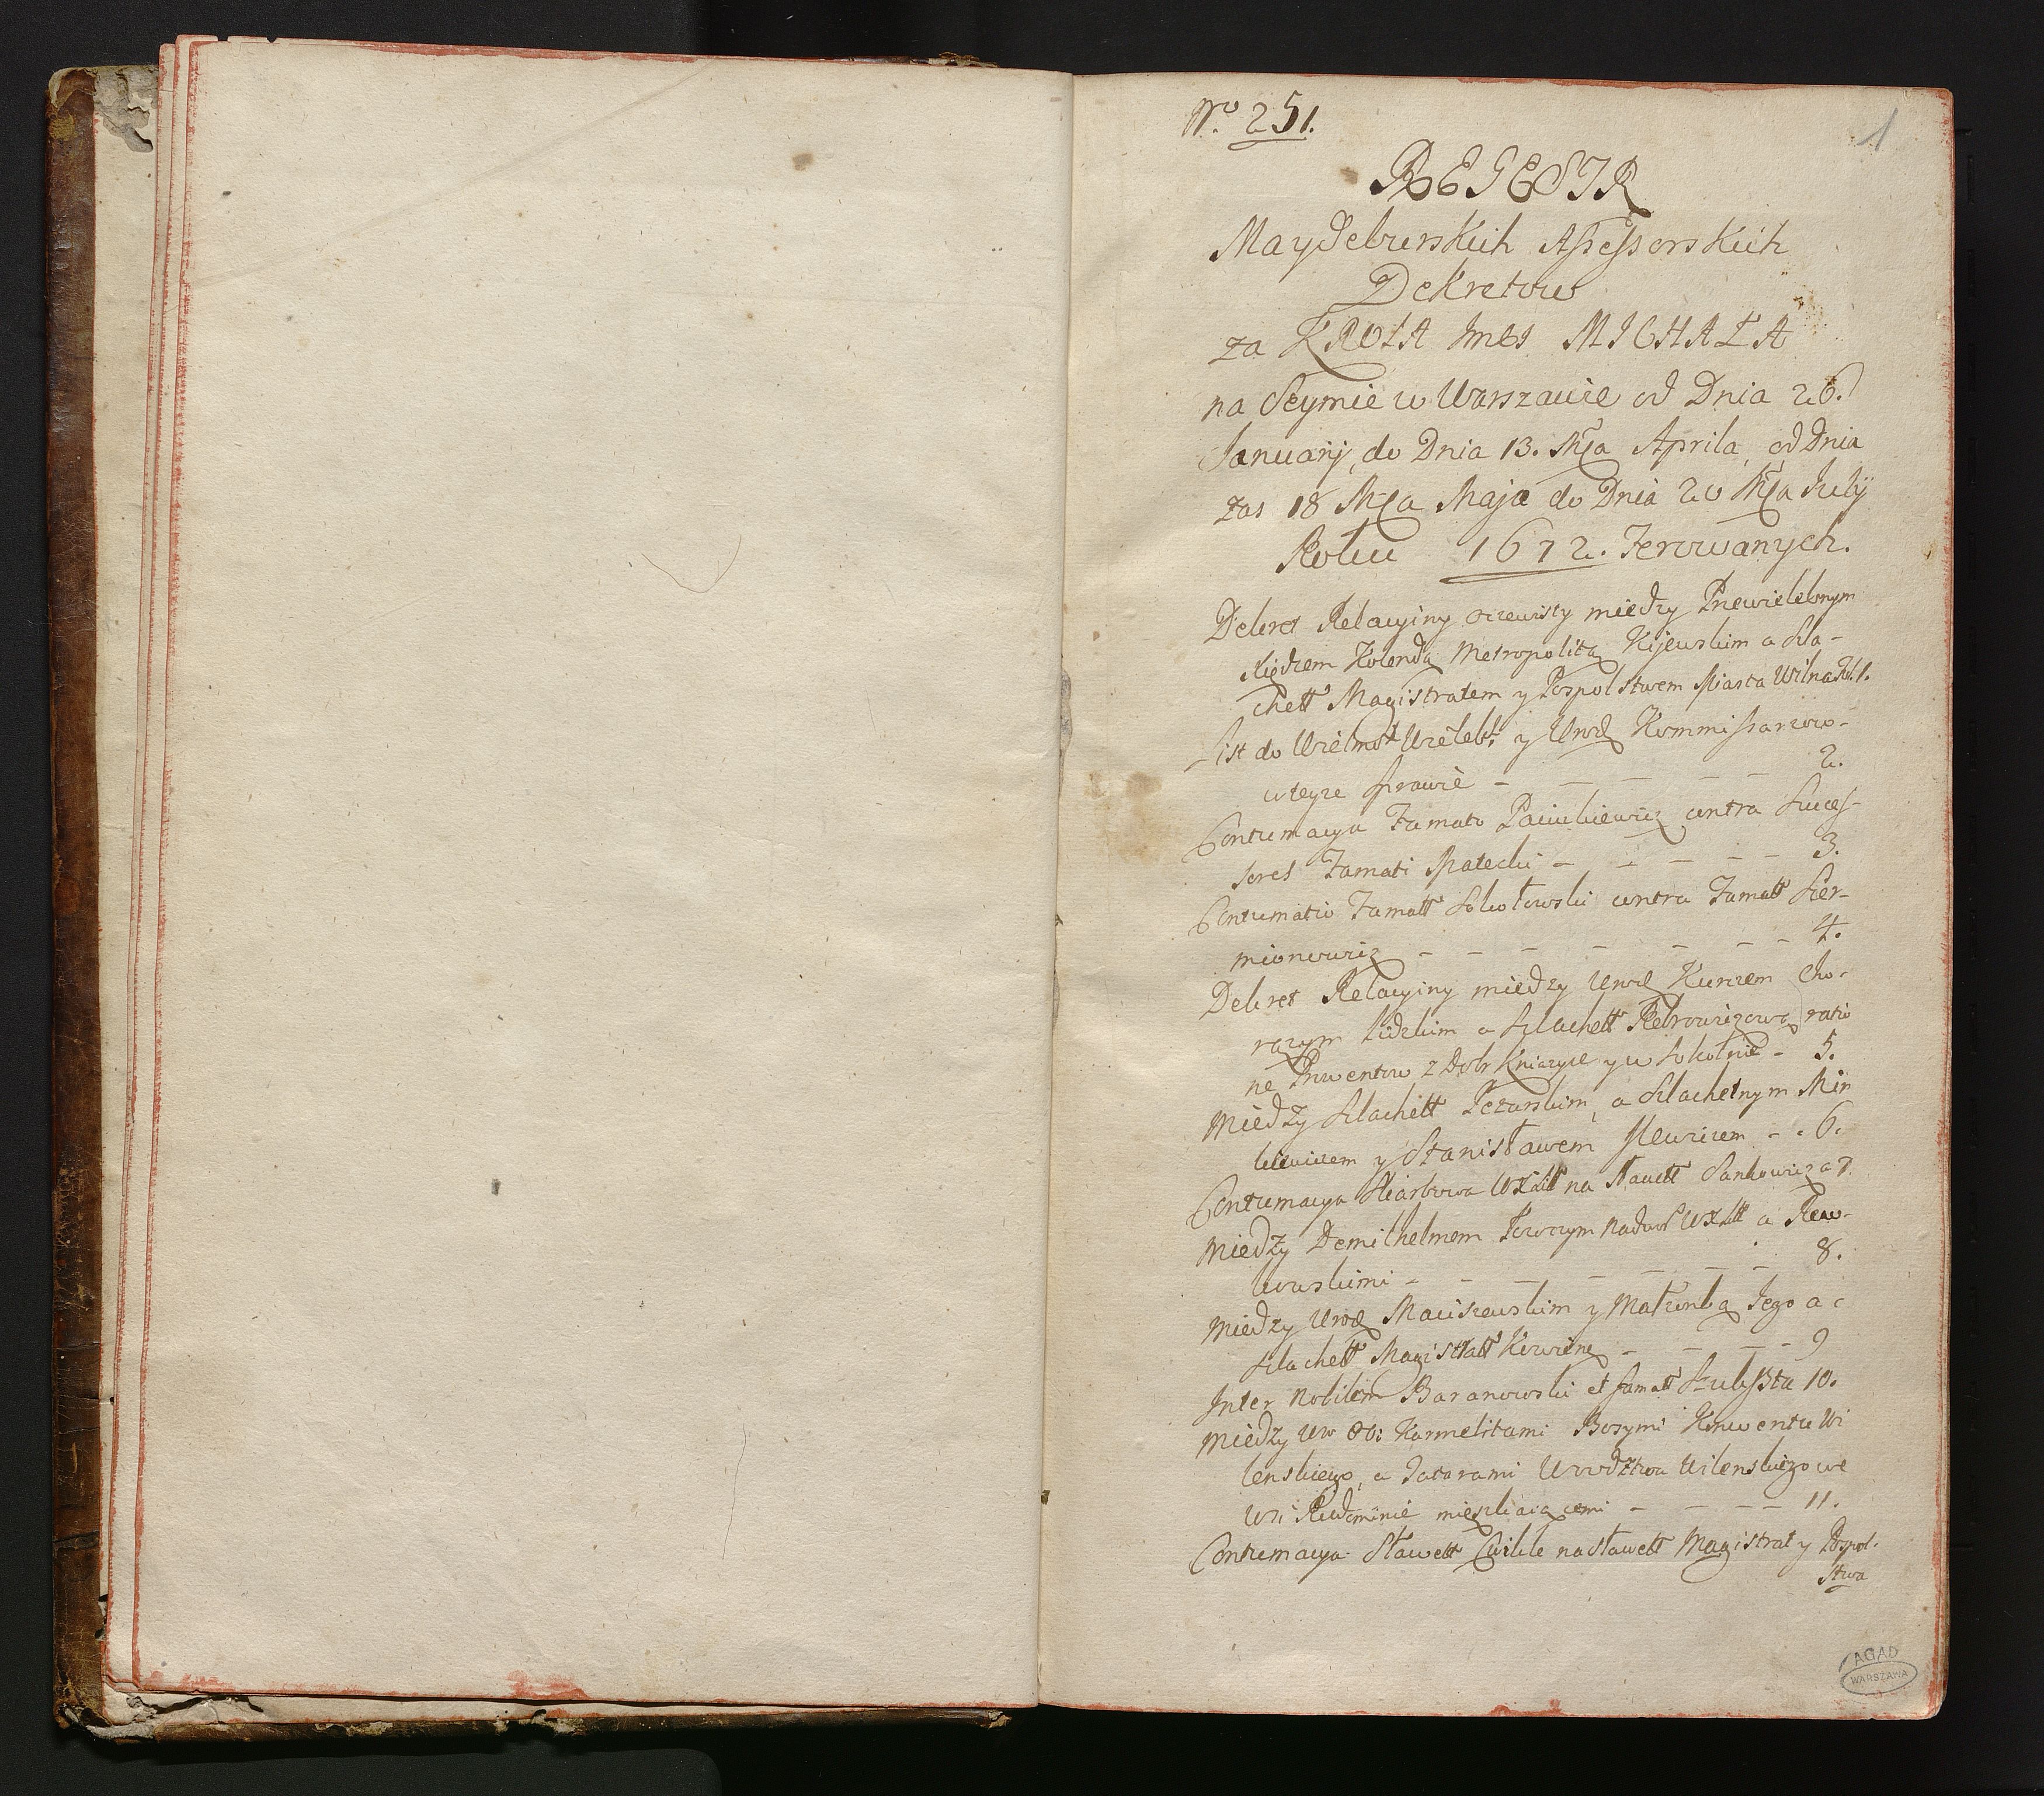 No. 251.
1
REIESTR
Maydeburskich Assessorskich
Dekretow
za KROLA Jmci MICHAŁA
na Seymie w Warszawie od Dnia 26.
Januarij, do Dnia 13. Mca Aprila, od Dnia
zas 18 Mca Maja do Dnia 20 Mca Julij
Roku 1672. Ferowanych.
Dekret Relacyiny oczewisty między Przewielebnym
Xiędzem Kolendą Metropolitą Kijewskim a Szla-
chett Magistratem y Pospolstwem Miasta Wilna Fol. 1.
List do Wielmoż Wieleb: y Urodz Kommissarzow
w teyze sprawie - - - - - 2.
Contumacya Famato Paciukiewicz contra Succes-
sores Famati Matecki - - - - - 3.
Contumatio Famatt Sokołowski contra Famatt Sier-
mionowicz - - - - - - - 4.
Dekret Relacyiny między Urodz Kunczem Cho-
rązym Lidzkim a Szlachett Pietrowiczową ratio
ne Prowentow z Dobr Kniazyce y w Sokołnie - 5.
Między Szlachett Pezarskim, a Szlachetnym Min
kiewiczem y Stanisławem Ilewiczem - - 6.
Contumacya Skarbowa WXLitt na Sławett Sankowicza 7.
Między Demilhelmem Łowczym Nadwor WXLitt a Rew-
kowskimi - - - - - - - 8.
Między Urodz Maciszewskim y Małzonką Jego a
Szlachett Magistratt Kowiens - - - - 9
Inter Nobilem Baranowski et Famatt Szulysta 10.
Między WW OO: Karmelitami Bosymi Konwentu Wi
lenskiego, a Tatarami Wwdztwa Wilenskiego we
Wsi Rudominie mieszkaiącemi - - - - 11.
Contumacya Sławett Cwikle na Sławett Magistrat y Pospol-
stwa
AGAD
WARSZAWA